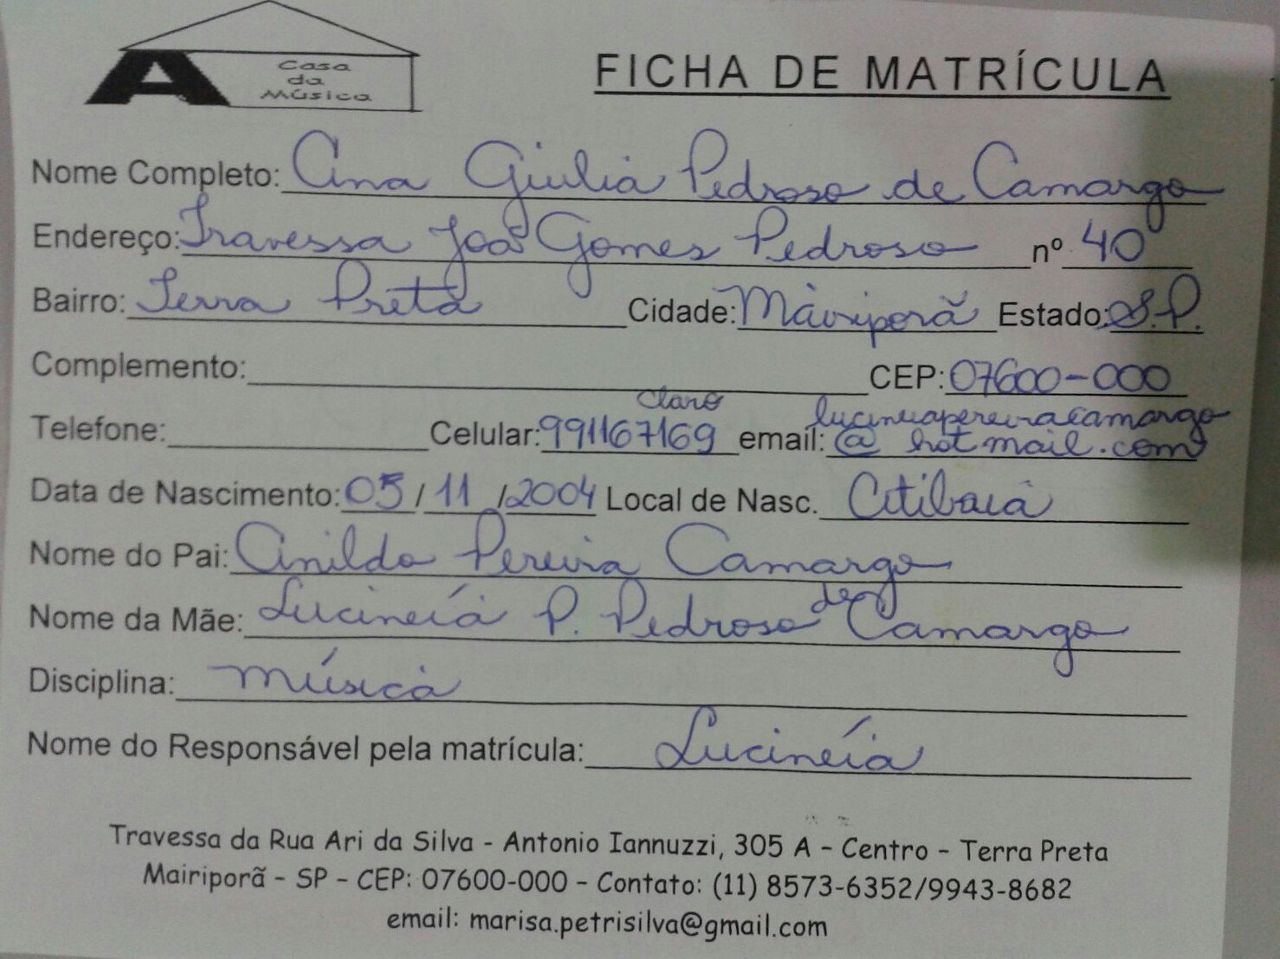 A Casa
da
Música
FICHA DE MATRÍCULA
Nome Completo: Ana Giulia Pedroso de Camargo
Endereço: Travessa João Gomes Pedroso nº 40
Bairro: Terra Preta Cidade: Mairiporã Estado: S.P.
Complemento: CEP: 07600-000
Claro lucineiapereiracamargo
Telefone: Celular: 991167169 email: @hotmail.com
Data de Nascimento: 05/11/2004 Local de Nasc. Atibaia
Nome do Pai: Anildo Pereira Camargo
Nome da Mãe: Lucinéia P. Pedroso de Camargo
Disciplina: Música
Nome do Responsável pela matrícula: Lucinéia
Travessa da Rua Ari da Silva - Antonio Iannuzzi, 305 A - Centro - Terra Preta
Mairiporã - SP - CEP: 07600-000 - Contato: (11) 8573-6352/9943-8682
email: marisa.petrisilva@gmail.com